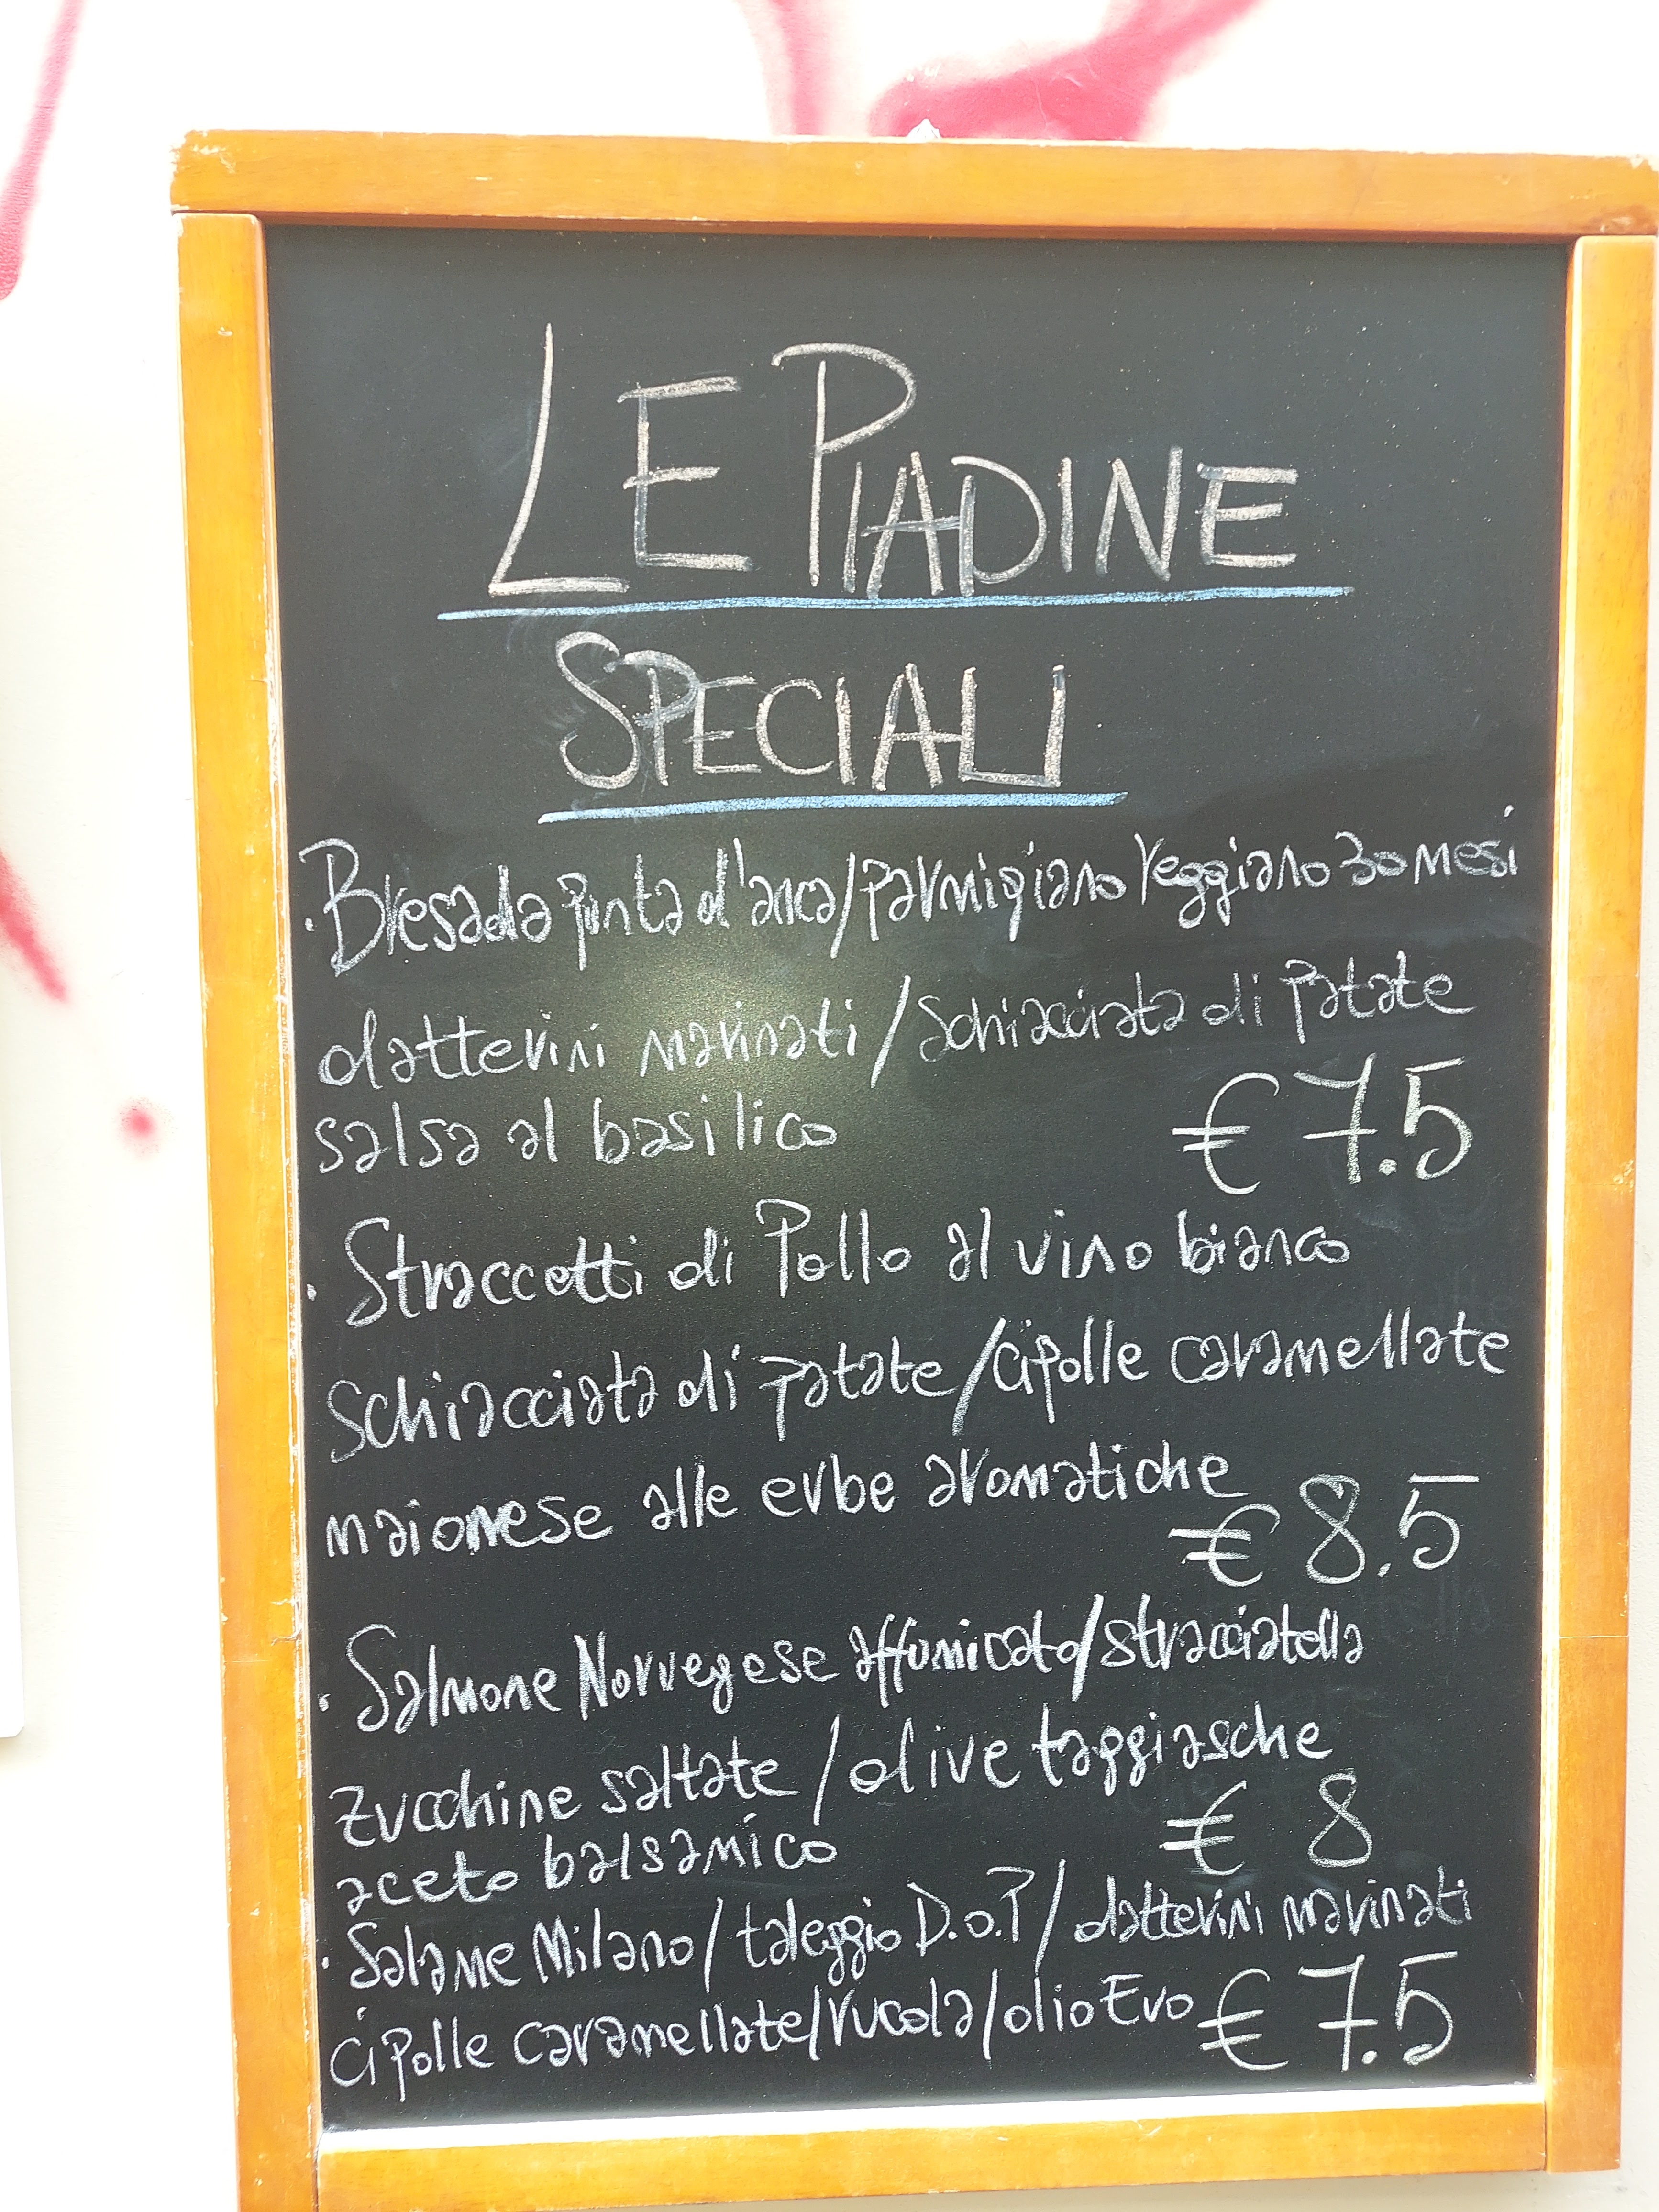 LE PIADINE
SPECIALI
· Bresaola punta d'anca/parmigiano reggiano 30 mesi
datterini marinati / schiacciata di patate
salsa al basilico € 7.5
· Straccetti di Pollo al vino bianco
schiacciata di patate / cipolle caramellate
maionese alle erbe aromatiche
€ 8.5
· Salmone Norvegese affumicato/stracciatella
zucchine saltate / olive taggiasche
aceto balsamico € 8
· Salame Milano / taleggio D.o.P / datterini marinati
cipolle caramellate/rucola/olio Evo € 7.5